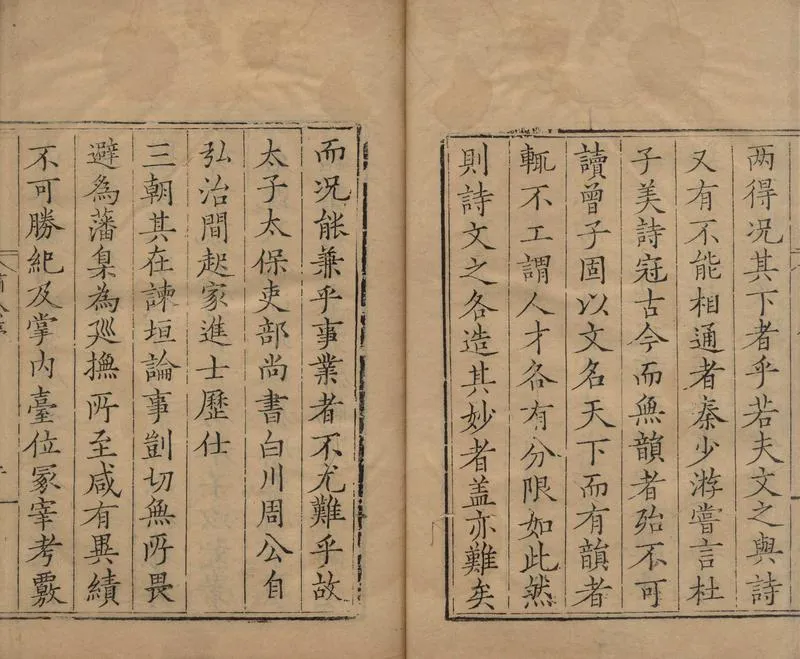 两得况其下者乎若夫文之與詩
又有不能相通者秦少游嘗言杜
子美詩冠古今而無韻者殆不可
讀曾子固以文名天下而有韻者
輒不工謂人才各有分限如此然
則詩文之各造其妙者盖亦難矣
而况能兼乎事業者不尤難乎故
太子太保吏部尚書白川周公自
弘治間起家進士歷仕
三朝其在諫垣論事剴切無所畏
避為藩臬為廵撫所至咸有異績
不可勝紀及掌內臺位冢宰考覈